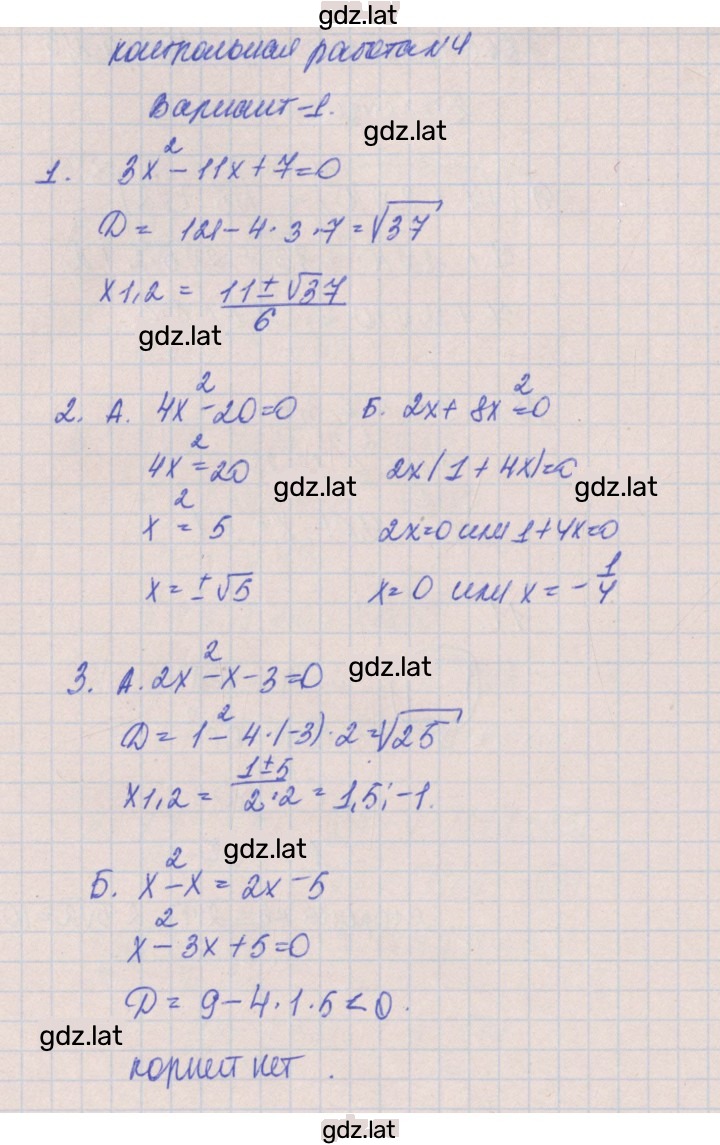 gdz.lat
контрольная работа №4
Вариант-1.
gdz.lat
1. 3x² - 11x + 7 = 0
D = 121 - 4 · 3 · 7 = √37
x1,2 = (11 ± √37)/6
gdz.lat
2. А. 4x² - 20 = 0
4x² = 20
x² = 5
x = ± √5
Б. 2x + 8x² = 0
2x(1 + 4x) = 0
2x = 0 или 1 + 4x = 0
x = 0 или x = - 1/4
gdz.lat
gdz.lat
3. А. 2x² - x - 3 = 0
gdz.lat
D = 1² - 4 · (-3) · 2 = √25
x1,2 = (1 ± 5)/(2 · 2) = 1,5; -1.
gdz.lat
Б. x² - x = 2x - 5
x² - 3x + 5 = 0
D = 9 - 4 · 1 · 5 < 0.
gdz.lat
корней нет.
gdz.lat